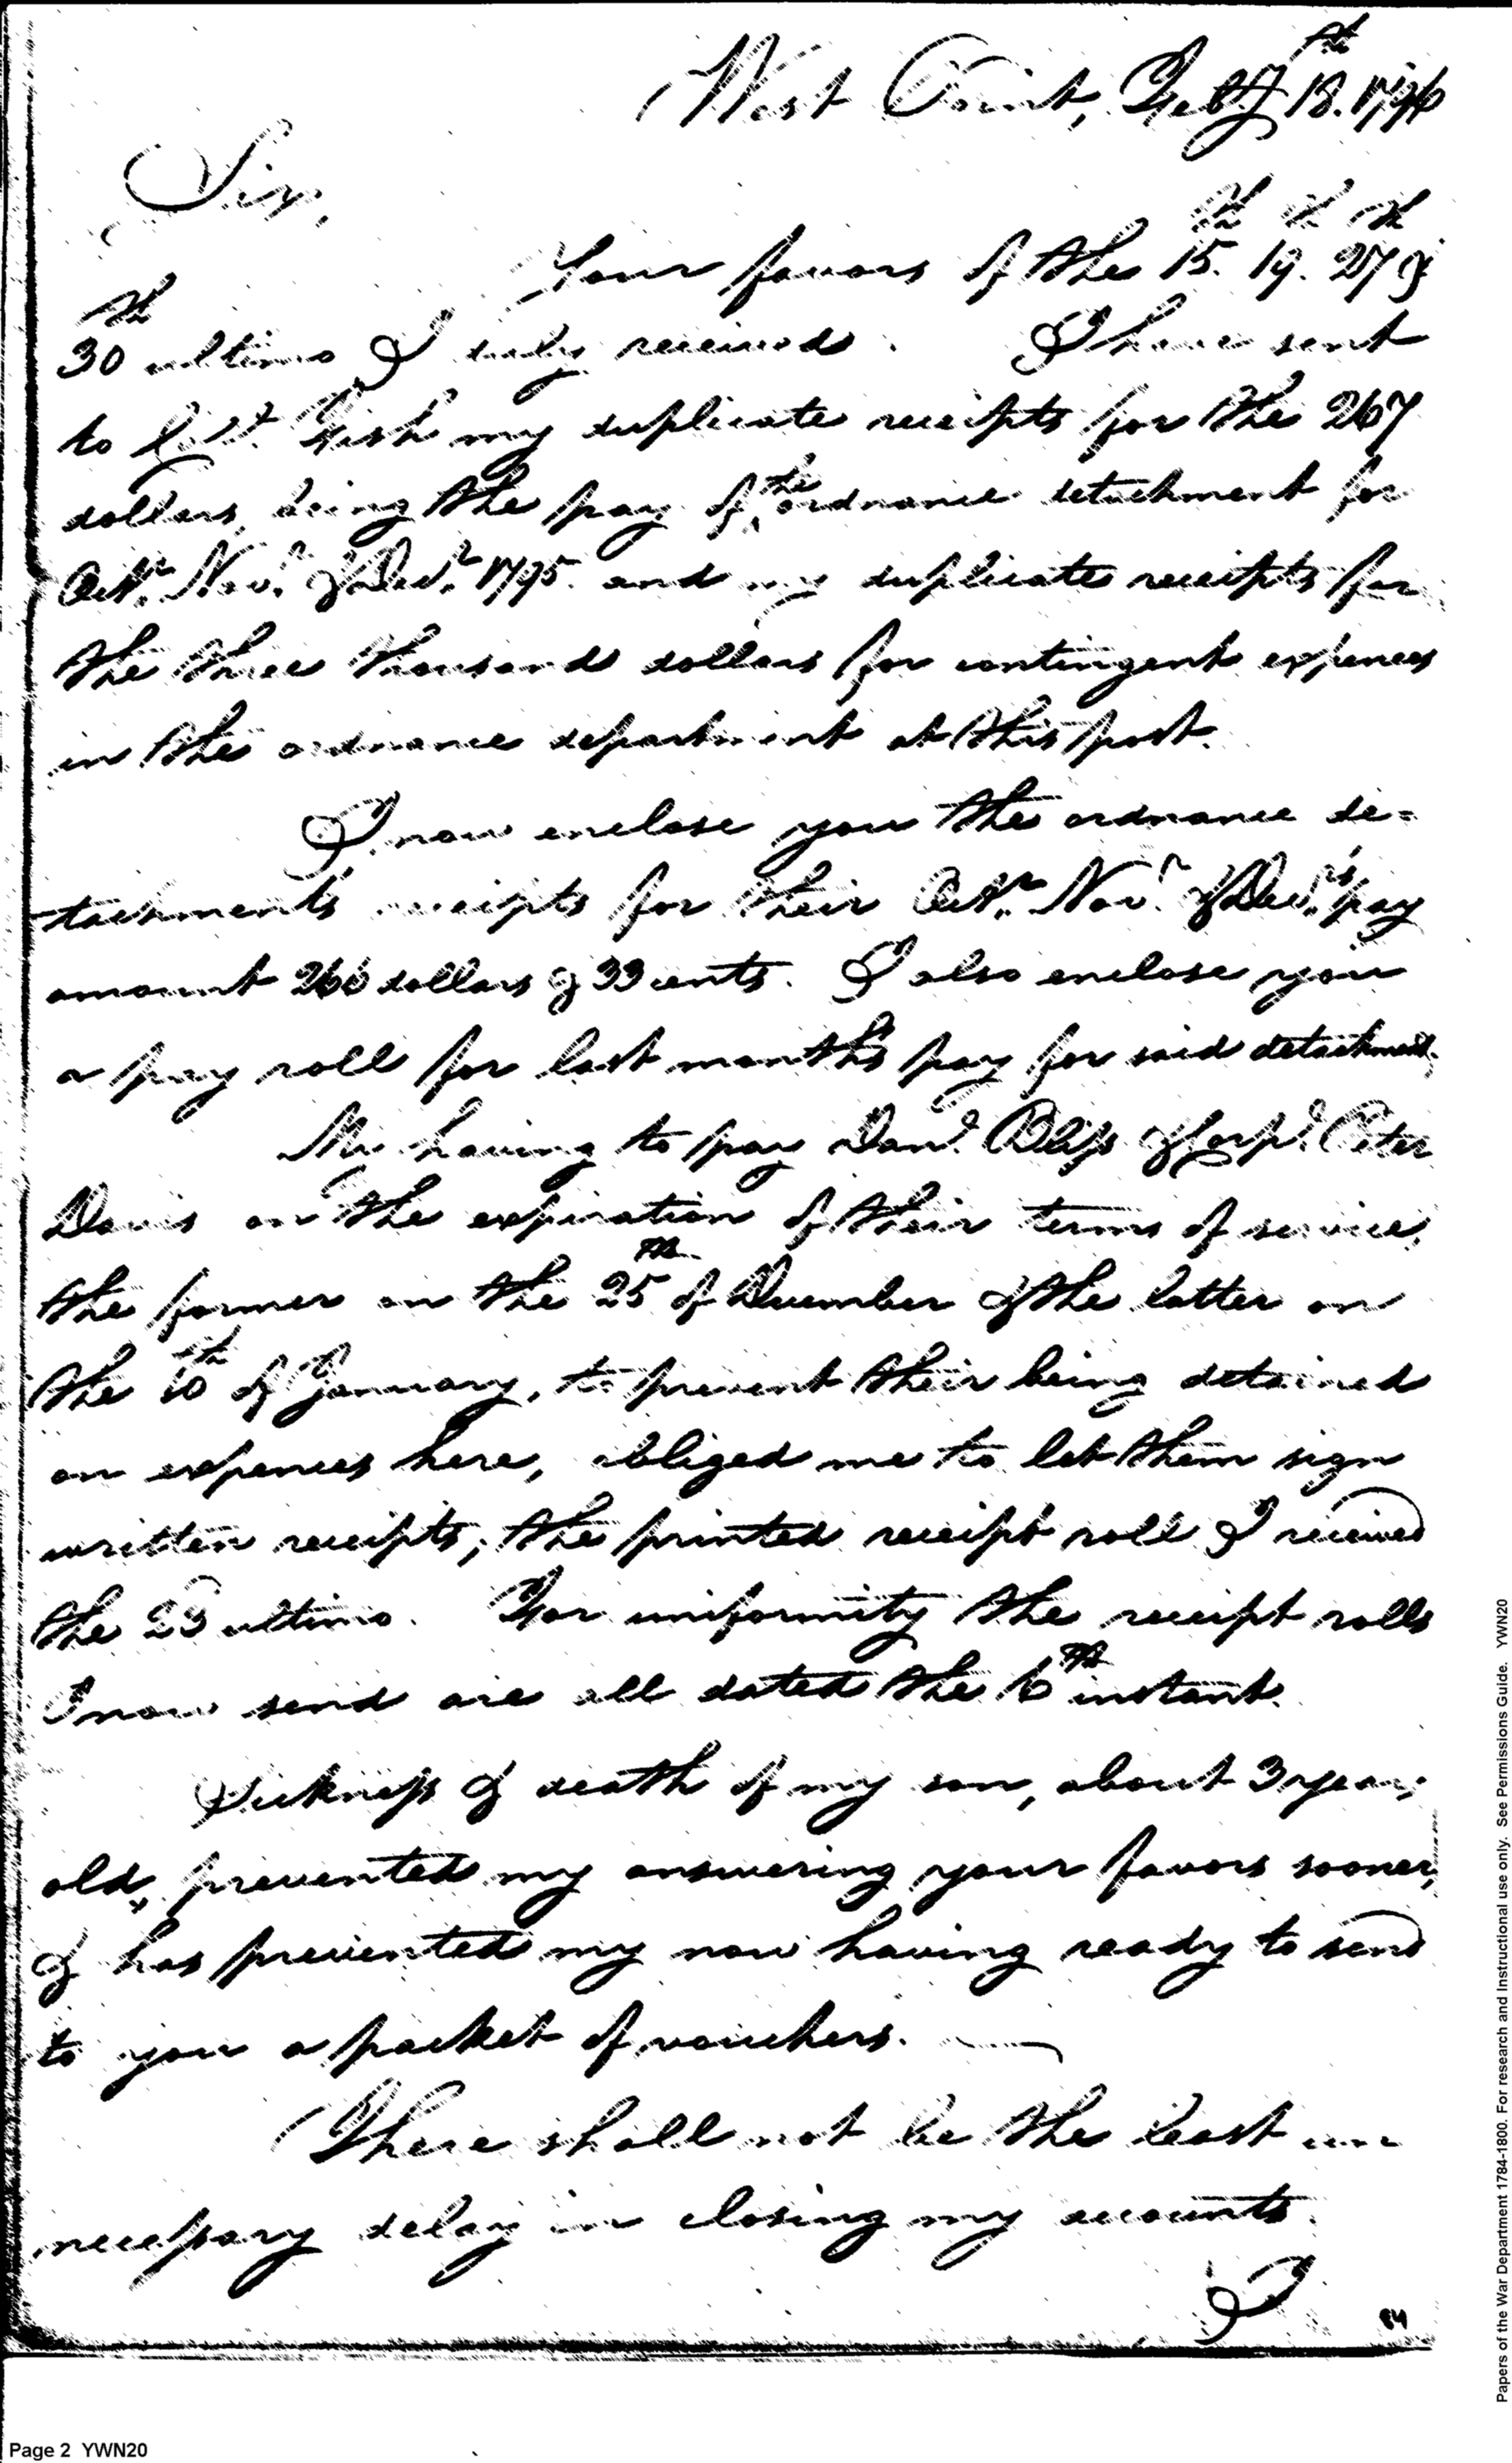 West Point, Feby 18.th 1796
Sir,
Your favors of the 15.th 19.th 27th &
30th ultimo I duly received. I have sent
to Col.º Fish my duplicate receipts for the 267
dollars, being the pay of the ordnance detachment for
Oct.r Nov.r & Dec.r 1795. and my duplicate receipts for
the three thousand dollars for contingent expences
in the ordnance department at this post.
I now enclose you the ordnance de=
tachment's receipts for their Oct.r Nov.r & Dec.r's pay
amount 266 dollars & 33 cents. I also enclose you
a pay roll for last month's pay for said detachment.
My having to pay Dan.l Bliss & Corp.l Peter
Davis on the expiration of their terms of service,
the former on the 25th of December & the latter on
the 10th of January, to prevent their being detained
on expences here, obliged me to let them sign
written receipts; the printed receipt roll I received
the 23 ultimo. For uniformity the receipt rolls
I now send are all dated the 6th instant.
Sickness & death of my son, about 3 years
old, prevented my answering your favors sooner,
& has prevented my now having ready to send
to you a packet of vouchers.
There shall not be the least un
necessary delay in closing my accounts.
I
84
Page 2 YWN20
Papers of the War Department 1784-1800. For research and Instructional use only. See Permissions Guide. YWN20